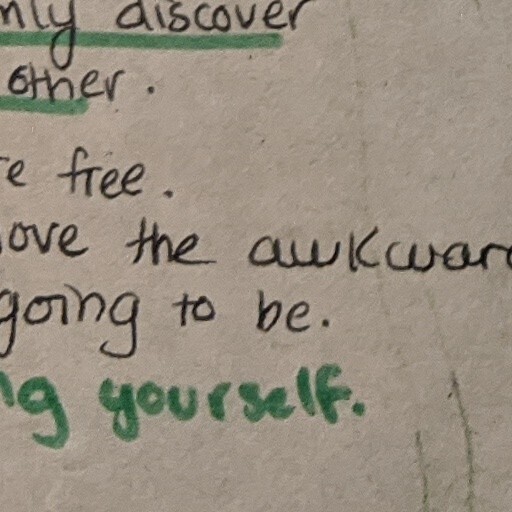 nly discover
other.
e free.
ove the awkwar
going to be.
ng yourself.